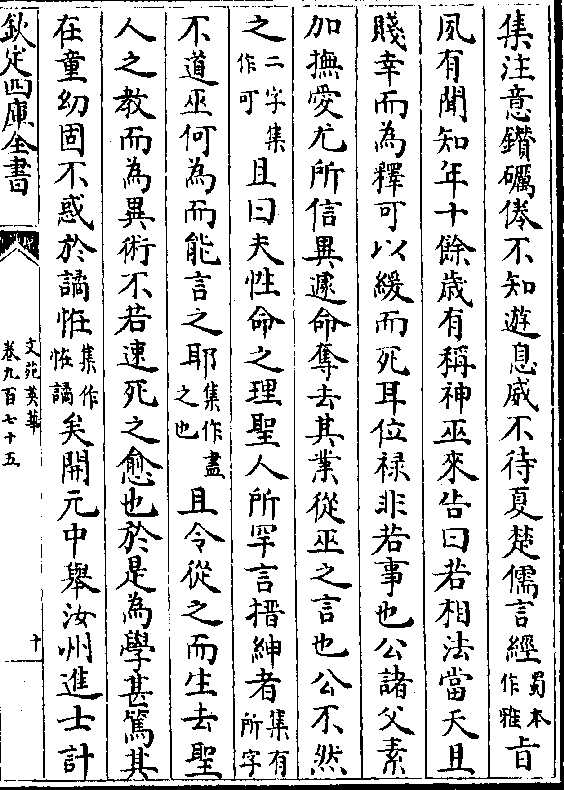 集注意鑽礪倦不知遊息威不待夏楚儒言經蜀本作雅旨
夙有聞知年十餘歲有稱神巫來告曰若相法當夭且
賤幸而為釋可以緩而死耳位禄非若事也公諸父素
加撫愛尤所信異遽命奪去其業從巫之言也公不然
之二字集作可且曰夫性命之理聖人所罕言搢紳者集有所字
不道巫何為而能言之耶集作盡之也且令從之而生去聖
人之教而為異術不若速死之愈也於是為學甚篤其
在童幼固不惑於譎怪集作怪譎矣開元中舉汝州進士計
欽定四庫全書
文苑英華
卷九百七十五
十